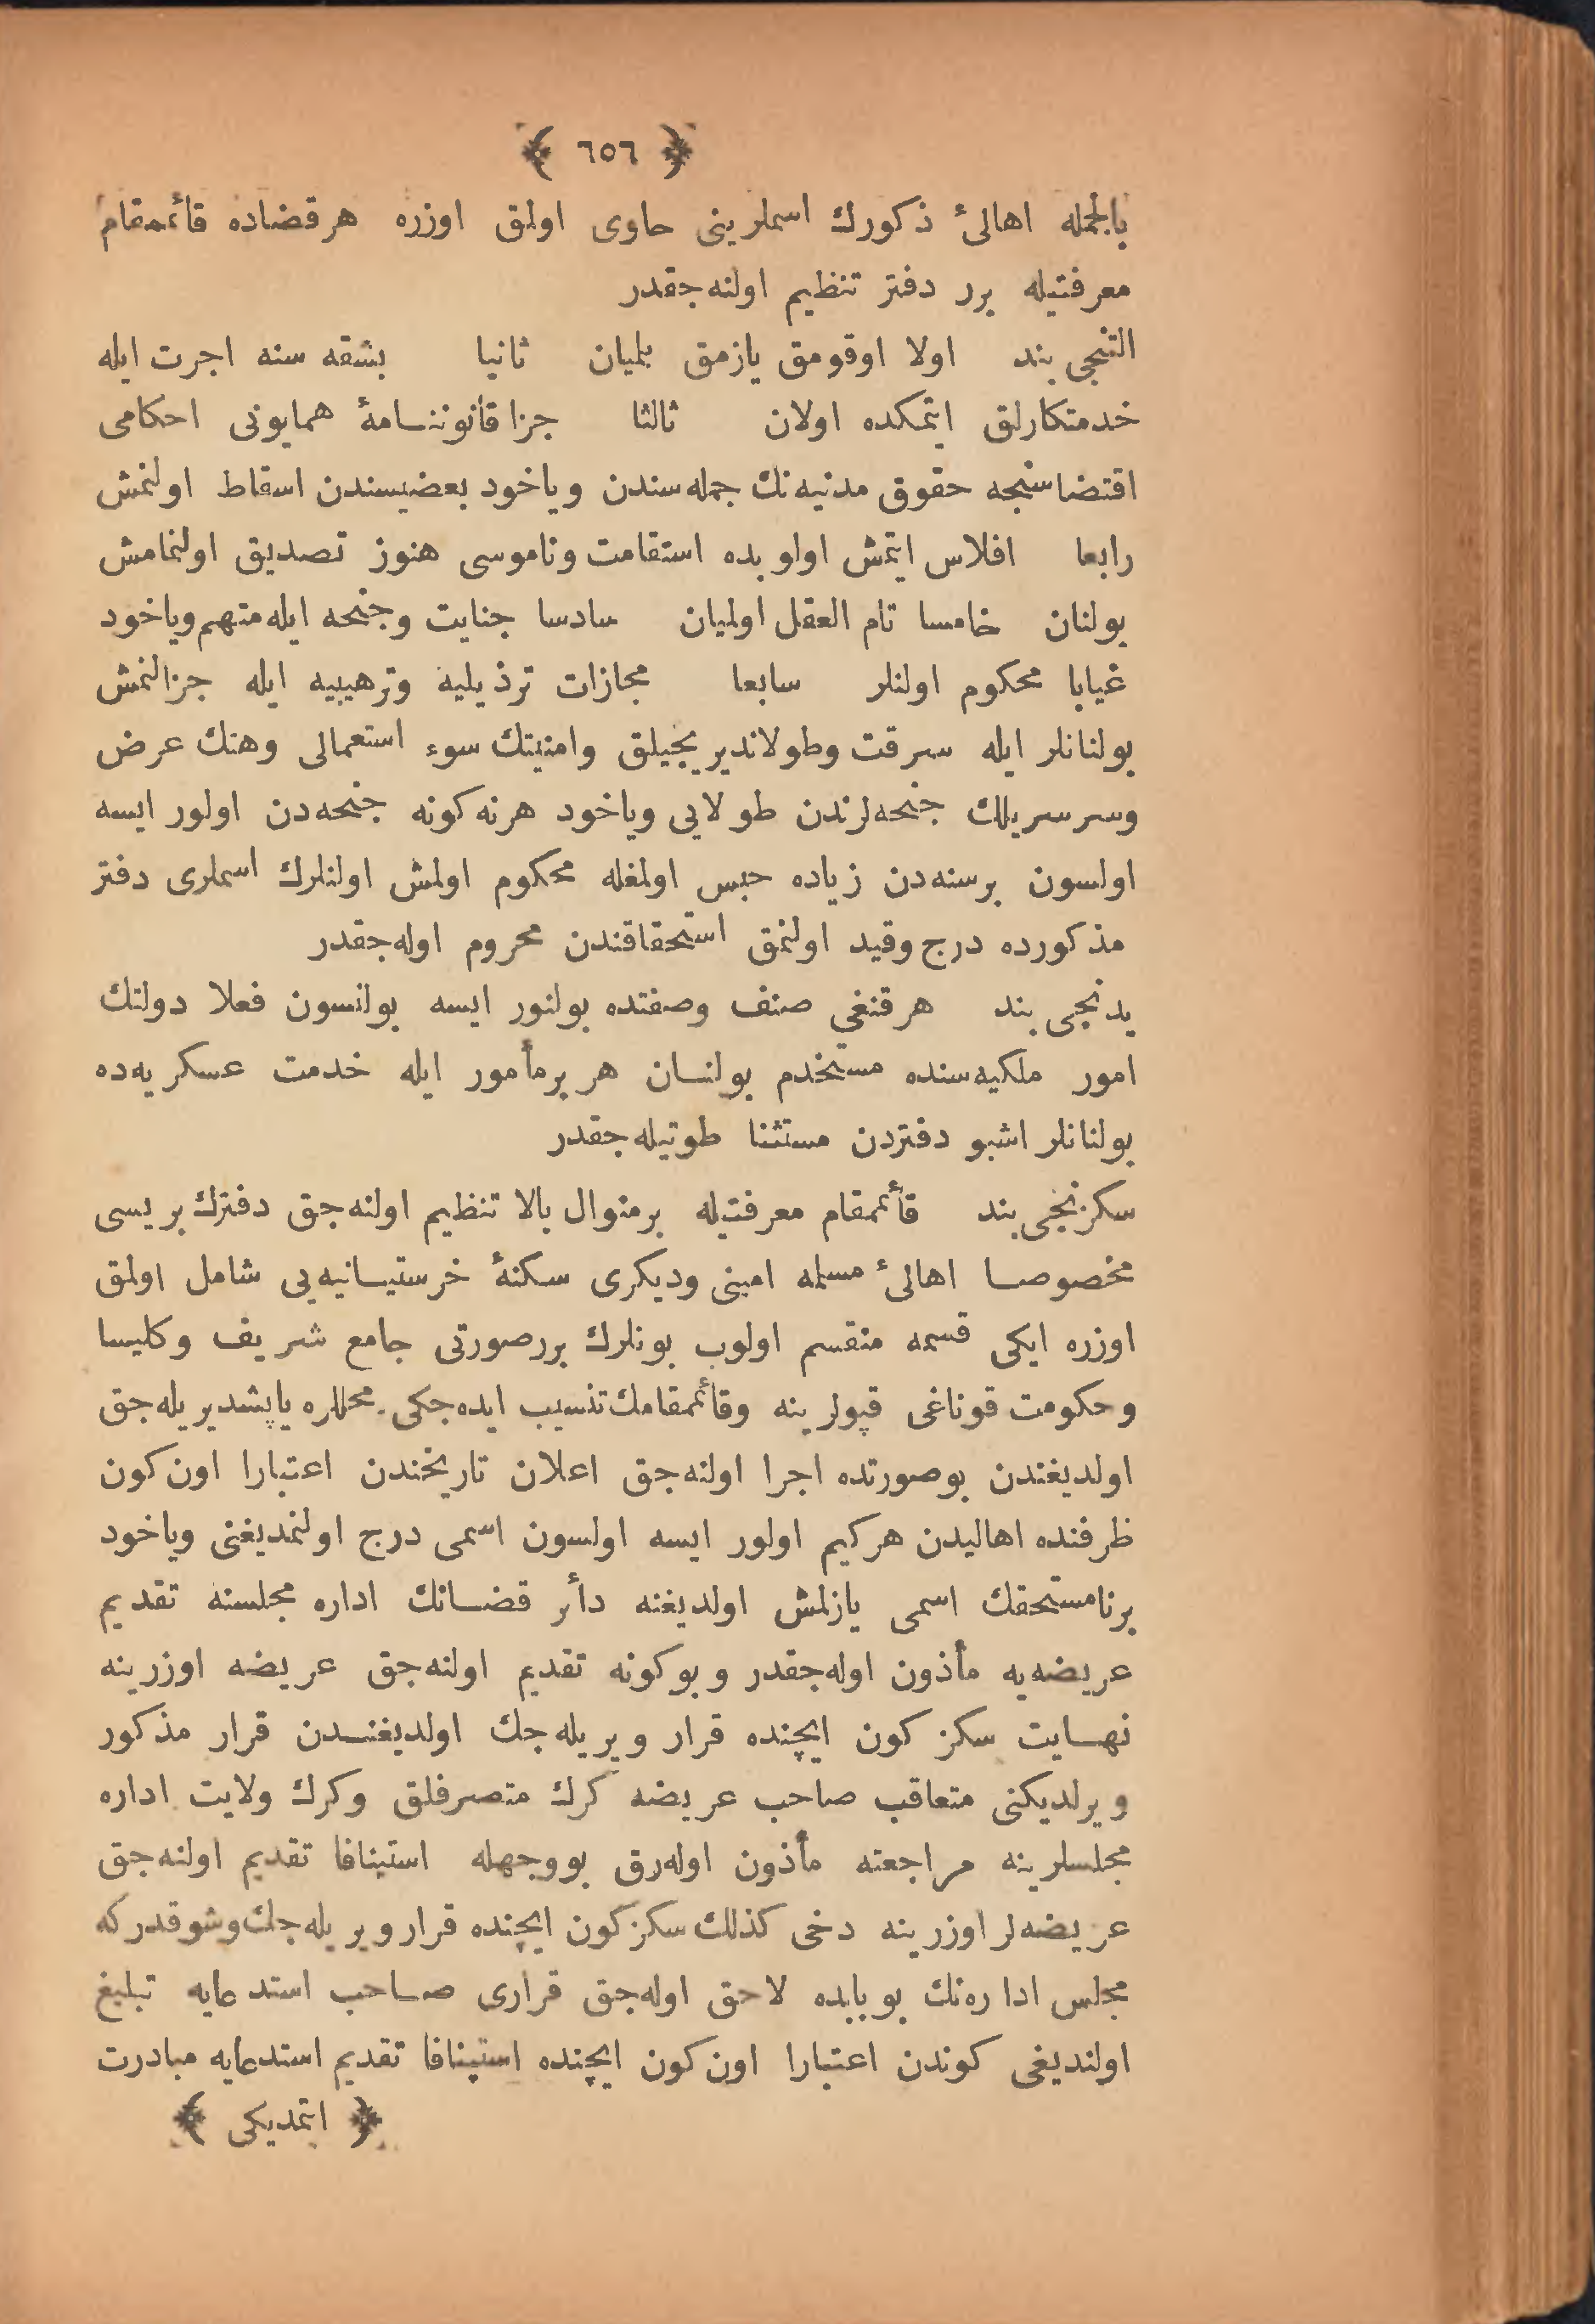 ﴿ ٦٥٦ ﴾
بالجمله اهالئ ذكورك اسملرينى حاوى اولمق اوزره هرقضاده قائممقام
معرفتيله برر دفتر تنظيم اولنه‌جقدر
التنجى بند اولا اوقومق يازمق بلميان ثانيا بشقه سنه اجرت ايله
خدمتكارلق ايتمكده اولان ثالثا جزا قانوننـامهٔ همايونى احكامى
اقتضاسنجه حقوق مدنيه نك جمله‌سندن وياخود بعضيسندن اسقاط اولنمش
رابعا افلاس ايتمش اولو بده استقامت وناموسى هنوز تصديق اولنمامش
بولنان خامسا تام العقل اوليان سادسا جنايت وجنحه ايله متهم وياخود
غيابا محكوم اولنلر سابعا مجازات ترذيليه وترهيبيه ايله جزالنمش
بولنانلر ايله سرقت وطولانديريجيلق وامنيتك سوء استعمالى وهتك عرض
وسرسريلك جنحه‌لرندن طولايى وياخود هرنه كونه جنحه‌دن اولور ايسه
اولسون برسنه‌دن زياده حبس اولمغله محكوم اولمش اولنلرك اسملرى دفتر
مذكورده درج وقيد اولنمق استحقاقندن محروم اوله‌جقدر
يدنجى بند هرقنغي صنف وصفتده بولنور ايسه بولنسون فعلا دولتك
امور ملكيه‌سنده مستخدم بولنـان هر برمأمور ايله خدمت عسكريه‌ده
بولنانلر اشبو دفتردن مستثنا طوتيله‌جقدر
سكزنجى بند قائممقام معرفتيله برمنوال بالا تنظيم اولنه‌جق دفترك بريسى
مخصوصـا اهالئ مسلمه امينى وديكرى سكنهٔ خرستيـانيه‌يى شامل اولمق
اوزره ايكى قسمه منقسم اولوب بونلرك بررصورتى جامع شريف وكليسا
وحكومت قوناغى قپولرينه وقائممقامك تنسيب ايده‌جكى محللره ياپشديريله‌جق
اولديغندن بوصورتده اجرا اولنه‌جق اعلان تاريخندن اعتبارا اون كون
ظرفنده اهاليدن هركيم اولور ايسه اولسون اسمى درج اولنمديغنى وياخود
برنامستحقك اسمى يازلمش اولديغنه دائر قضـانك اداره مجلسنه تقديم
عريضه‌يه مأذون اوله‌جقدر و بو كونه تقديم اولنه‌جق عريضه اوزرينه
نهـايت سكز كون ايچنده قرار ويريله‌جك اولديغنـدن قرار مذكور
ويرلديكنى متعاقب صاحب عريضه كرك متصرفلق وكرك ولايت اداره
مجلسلرينه مراجعته مأذون اوله‌رق بووجهله استينافا تقديم اولنه‌جق
عريضه‌لر اوزرينه دخى كذلك سكز كون ايچنده قرار ويريله‌جك وشوقدركه
مجلس اداره‌نك بو بابده لاحق اوله‌جق قرارى صـاحب استدعايه تبليغ
اولنديغى كوندن اعتبارا اون كون ايچنده استينافا تقديم استدعايه مبادرت
﴿ ايتمديكى ﴾